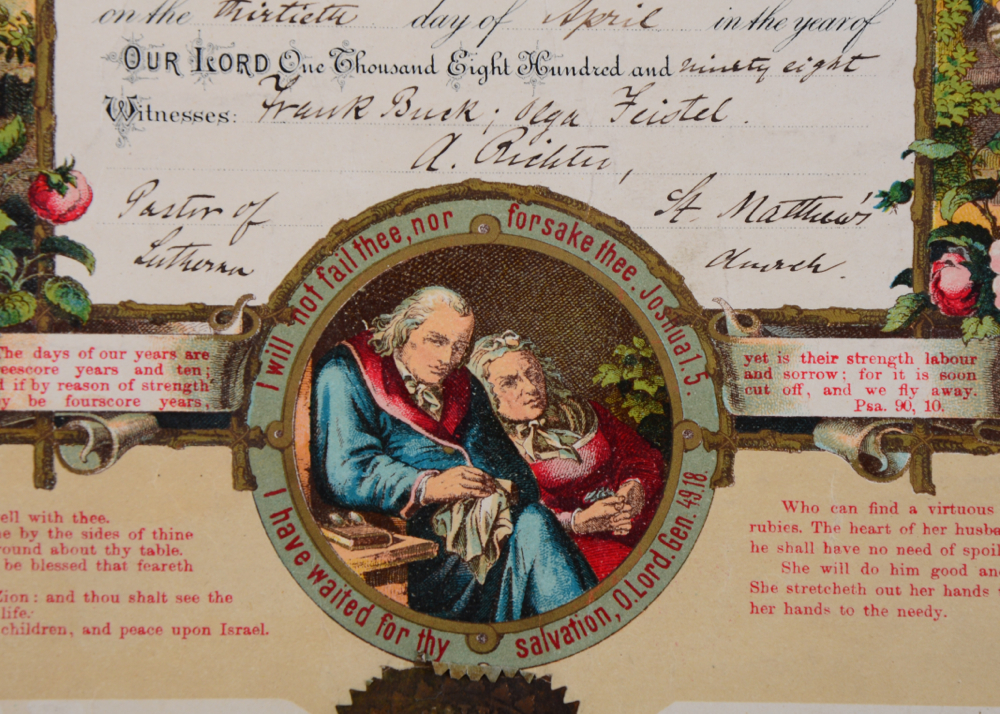 on the thirtieth day of April in the year of
OUR LORD One Thousand Eight Hundred and ninety eight
Witnesses: Frank Buck; Olga Feistel.
A. Richter,
Pastor of St. Matthew's
Lutheran Church.
I will not fail thee, nor forsake thee. Joshua 1. 5.
I have waited for thy salvation, O Lord. Gen. 49.18
The days of our years are
reescore years and ten;
d if by reason of strength
y be fourscore years,
yet is their strength labour
and sorrow; for it is soon
cut off, and we fly away.
Psa. 90, 10.
ell with thee.
e by the sides of thine
round about thy table.
be blessed that feareth
Zion: and thou shalt see the
life.
children, and peace upon Israel.
Who can find a virtuous
rubies. The heart of her husba
he shall have no need of spoil
She will do him good an
She stretcheth out her hands
her hands to the needy.